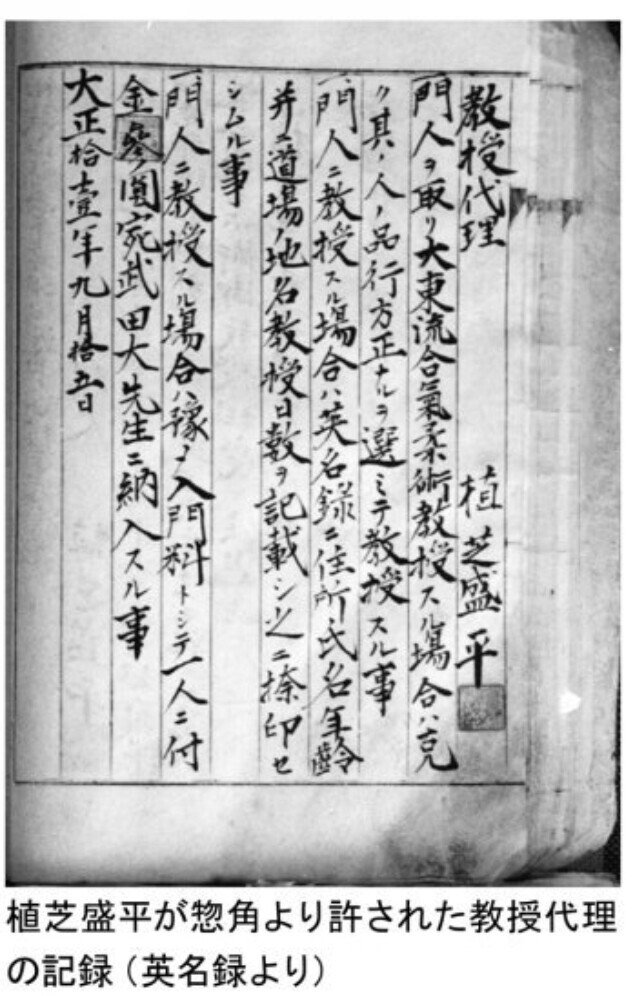 教授代理 植芝盛平
一、門人ヲ取リ大東流合氣柔術教授スル場合ハ克
ク其ノ人ノ品行方正ナルヲ選ミテ教授スル事
一、門人ニ教授スル場合ハ英名録ニ住所氏名年齢
并ニ道場ノ地名教授日数ヲ記載シ之ニ捺印セ
シムル事
一、門人ニ教授スル場合ハ豫メ入門料トシテ一人ニ付
金參圓宛武田大先生ニ納入スル事
大正拾壹年九月拾五日
植芝盛平が惣角より許された教授代理
の記録（英名録より）